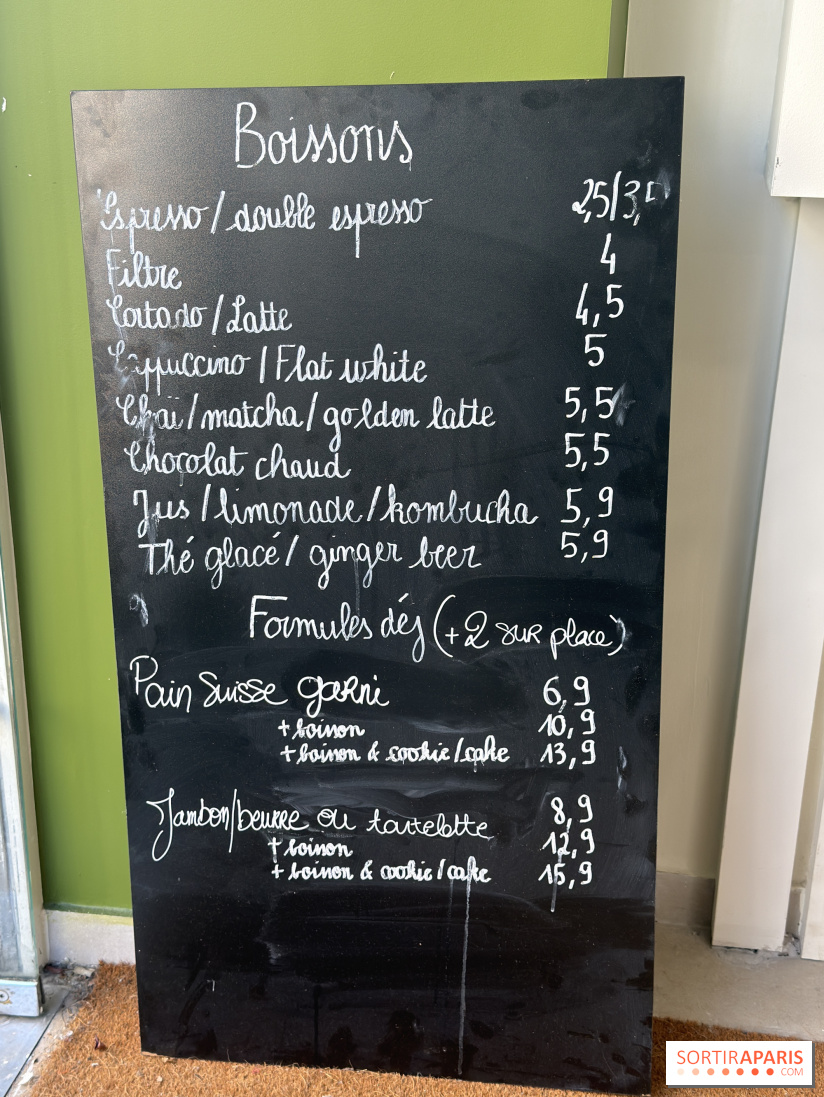 Boissons
Espresso/double espresso 2,5/3,5
Filtre 4
Cortado/Latte 4,5
Cappuccino/Flat white 5
Chaï/matcha/golden latte 5,5
Chocolat chaud 5,5
Jus/limonade/kombucha 5,9
Thé glacé/ginger beer 5,9
Formules déj (+2 sur place)
Pain Suisse garni 6,9
+boisson 10,9
+boisson & cookie/cake 13,9
Jambon/beurre ou tartelette 8,9
+boisson 12,9
+boisson & cookie/cake 15,9
SORTIRAPARIS
.COM